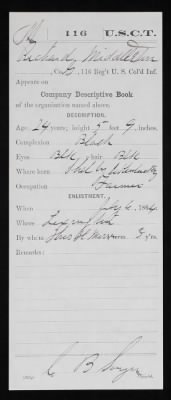 M | 116 | U.S.C.T.
Richard Middleton
Co. G, 116 Reg't U. S. Col'd Inf.
Appears on
Company Descriptive Book
of the organization named above.
DESCRIPTION.
Age 24 years; height 5 feet 9 inches.
Complexion Black
Eyes Blk; hair Blk
Where born Shelby Co Kentucky
Occupation Farmer
ENLISTMENT.
When July 6, 1864.
Where Lexington
By whom Thos H; term 3 y'rs.
Remarks:
C B